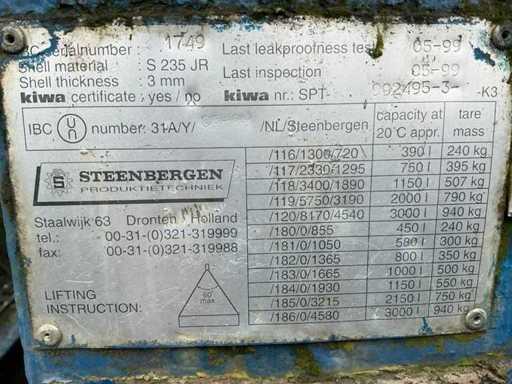 IBC serialnumber : 1749 Last leakproofness test 05-99
Shell material : S 235 JR Last inspection 05-99
Shell thickness : 3 mm
kiwa certificate : yes / no kiwa nr.: SPT- 992495-3- -K3
IBC UN number: 31A/Y/ /NL/Steenbergen capacity at 20°C appr. tare mass
/116/1300/720 390 l 240 kg
/117/2330/1295 750 l 395 kg
/118/3400/1890 1150 l 507 kg
/119/5750/3190 2000 l 790 kg
/120/8170/4540 3000 l 940 kg
/180/0/855 450 l 240 kg
/181/0/1050 580 l 300 kg
/182/0/1365 800 l 350 kg
/183/0/1665 1000 l 500 kg
/184/0/1930 1150 l 550 kg
/185/0/3215 2150 l 750 kg
/186/0/4580 3000 l 940 kg
S STEENBERGEN
PRODUKTIETECHNIEK
Staalwijk 63 Dronten Holland
tel.: 00-31-(0)321-319999
fax: 00-31-(0)321-319988
LIFTING
INSTRUCTION:
60°
max.